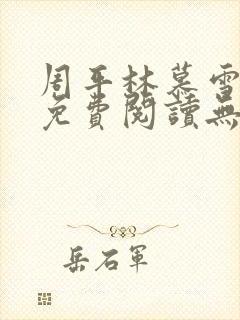 周平林慕雪
免費閱讀無
岳石軍